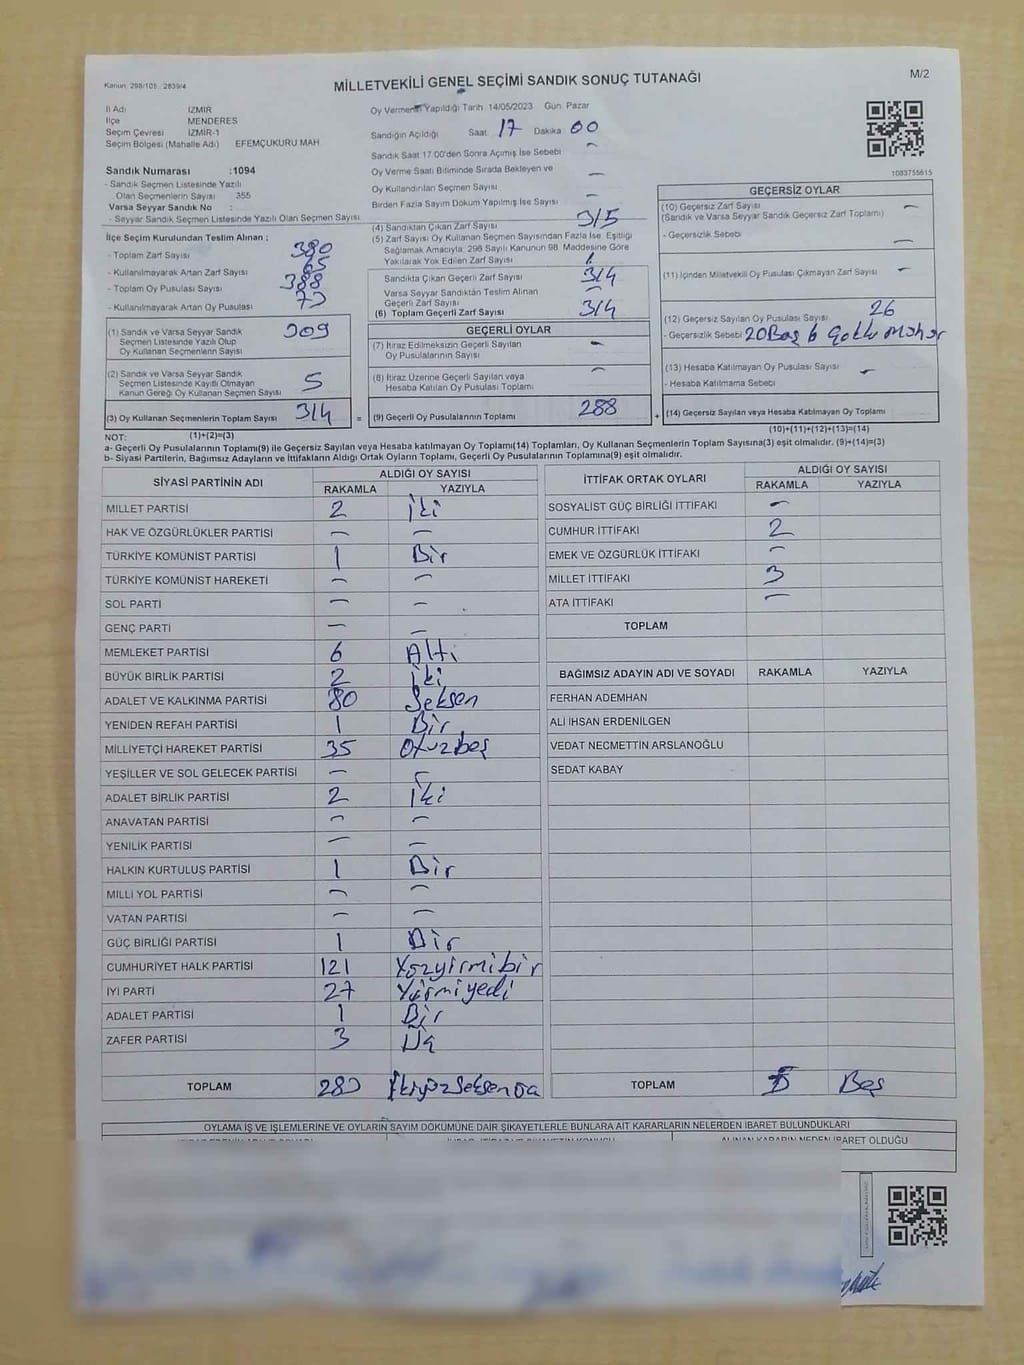 Kanun: 298/105 , 2839/4
MİLLETVEKİLİ GENEL SEÇİMİ SANDIK SONUÇ TUTANAĞI
M/2
İl Adı İZMİR
İlçe MENDERES
Seçim Çevresi İZMİR-1
Seçim Bölgesi (Mahalle Adı) EFEMÇUKURU MAH
Sandık Numarası :1094
- Sandık Seçmen Listesinde Yazılı
Olan Seçmenlerin Sayısı 355
Varsa Seyyar Sandık No :
- Seyyar Sandık Seçmen Listesinde Yazılı Olan Seçmen Sayısı
Oy Vermenin Yapıldığı Tarih 14/05/2023 Gün Pazar
Sandığın Açıldığı Saat 17 Dakika 00
Sandık Saat 17.00'den Sonra Açımış İse Sebebi -
Oy Verme Saati Bitiminde Sırada Bekleyen ve
Oy Kullandırılan Seçmen Sayısı -
Birden Fazla Sayım Döküm Yapılmış İse Sayısı -
1083755615
İlçe Seçim Kurulundan Teslim Alınan ;
- Toplam Zarf Sayısı 380
- Kullanılmayarak Artan Zarf Sayısı 65
- Toplam Oy Pusulası Sayısı 388
- Kullanılmayarak Artan Oy Pusulası 73
(1) Sandık ve Varsa Seyyar Sandık
Seçmen Listesinde Yazılı Olup
Oy Kullanan Seçmenlerin Sayısı 309
(2) Sandık ve Varsa Seyyar Sandık
Seçmen Listesinde Kayıtlı Olmayan
Kanun Gereği Oy Kullanan Seçmen Sayısı 5
(3) Oy Kullanan Seçmenlerin Toplam Sayısı 314 =
(4) Sandıktan Çıkan Zarf Sayısı 315
(5) Zarf Sayısı Oy Kullanan Seçmen Sayısından Fazla İse, Eşitliği
Sağlamak Amacıyla, 298 Sayılı Kanunun 98. Maddesine Göre
Yakılarak Yok Edilen Zarf Sayısı 1
Sandıkta Çıkan Geçerli Zarf Sayısı 314
Varsa Seyyar Sandıktan Teslim Alınan
Geçerli Zarf Sayısı -
(6) Toplam Geçerli Zarf Sayısı 314
GEÇERLİ OYLAR
(7) İtiraz Edilmeksizin Geçerli Sayılan
Oy Pusulalarının Sayısı -
(8) İtiraz Üzerine Geçerli Sayılan veya
Hesaba Katılan Oy Pusulası Toplamı -
(9) Geçerli Oy Pusulalarının Toplamı 288 +
GEÇERSİZ OYLAR
(10) Geçersiz Zarf Sayısı -
(Sandık ve Varsa Seyyar Sandık Geçersiz Zarf Toplamı)
- Geçersizlik Sebebi -
(11) İçinden Milletvekili Oy Pusulası Çıkmayan Zarf Sayısı -
(12) Geçersiz Sayılan Oy Pusulası Sayısı 26
- Geçersizlik Sebebi 20 Boş 6 Çoklu Mühür
(13) Hesaba Katılmayan Oy Pusulası Sayısı -
- Hesaba Katılmama Sebebi
(14) Geçersiz Sayılan veya Hesaba Katılmayan Oy Toplamı
NOT: (1)+(2)=(3) (10)+(11)+(12)+(13)=(14)
a- Geçerli Oy Pusulalarının Toplamı(9) ile Geçersiz Sayılan veya Hesaba katılmayan Oy Toplamı(14) Toplamları, Oy Kullanan Seçmenlerin Toplam Sayısına(3) eşit olmalıdır. (9)+(14)=(3)
b- Siyasi Partilerin, Bağımsız Adayların ve İttifakların Aldığı Ortak Oyların Toplamı, Geçerli Oy Pusulalarının Toplamına(9) eşit olmalıdır.
SİYASİ PARTİNİN ADI ALDIĞI OY SAYISI
RAKAMLA YAZIYLA
MİLLET PARTİSİ 2 İki
HAK VE ÖZGÜRLÜKLER PARTİSİ - -
TÜRKİYE KOMÜNİST PARTİSİ 1 Bir
TÜRKİYE KOMÜNİST HAREKETİ - -
SOL PARTİ - -
GENÇ PARTİ - -
MEMLEKET PARTİSİ 6 Altı
BÜYÜK BİRLİK PARTİSİ 2 İki
ADALET VE KALKINMA PARTİSİ 80 Seksen
YENİDEN REFAH PARTİSİ 1 Bir
MİLLİYETÇİ HAREKET PARTİSİ 35 Otuzbeş
YEŞİLLER VE SOL GELECEK PARTİSİ - -
ADALET BİRLİK PARTİSİ 2 İki
ANAVATAN PARTİSİ - -
YENİLİK PARTİSİ - -
HALKIN KURTULUŞ PARTİSİ 1 Bir
MİLLİ YOL PARTİSİ - -
VATAN PARTİSİ - -
GÜÇ BİRLİĞİ PARTİSİ 1 Bir
CUMHURİYET HALK PARTİSİ 121 Yüzyirmibir
İYİ PARTİ 27 Yirmiyedi
ADALET PARTİSİ 1 Bir
ZAFER PARTİSİ 3 Üç
TOPLAM 283
İTTİFAK ORTAK OYLARI ALDIĞI OY SAYISI
RAKAMLA YAZIYLA
SOSYALİST GÜÇ BİRLİĞİ İTTİFAKI -
CUMHUR İTTİFAKI 2
EMEK VE ÖZGÜRLÜK İTTİFAKI -
MİLLET İTTİFAKI 3
ATA İTTİFAKI -
TOPLAM
BAĞIMSIZ ADAYIN ADI VE SOYADI RAKAMLA YAZIYLA
FERHAN ADEMHAN
ALİ İHSAN ERDENİLGEN
VEDAT NECMETTİN ARSLANOĞLU
SEDAT KABAY
TOPLAM 5 Beş
OYLAMA İŞ VE İŞLEMLERİNE VE OYLARIN SAYIM DÖKÜMÜNE DAİR ŞİKAYETLERLE BUNLARA AİT KARARLARIN NELERDEN İBARET BULUNDUKLARI
ALINAN KARARIN NEDEN İBARET OLDUĞU